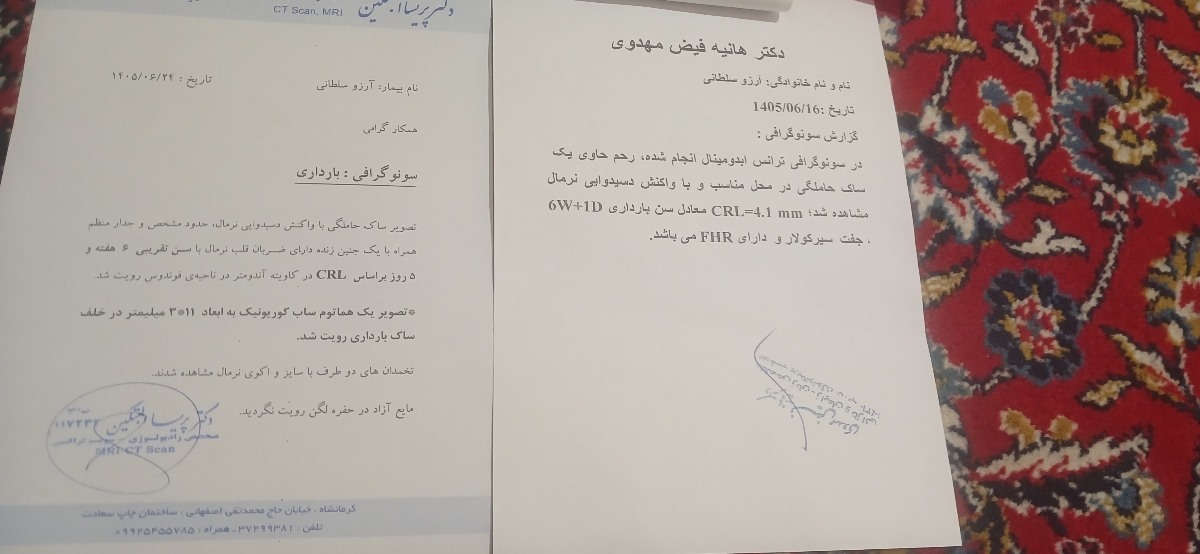 دکتر پریسا
CT Scan, MRI
نام بیمار: آرزو سلطانی
تاریخ : ۱۴۰۵/۰۶/۲۴
همکار گرامی
سونوگرافی : بارداری
تصویر ساک حاملگی با واکنش دسیدوایی نرمال، حدود مشخص و جدار منظم
همراه با یک جنین زنده دارای ضربان قلب نرمال با سن تقریبی ۶ هفته و
۵ روز براساس CRL در کاویته آندومتر در ناحیه‌ی فوندوس رویت شد.
*تصویر یک هماتوم ساب کوریونیک به ابعاد ۱۱*۳ میلیمتر در خلف
ساک بارداری رویت شد.
تخمدان های دو طرف با سایز و اکوی نرمال مشاهده شدند.
مایع آزاد در حفره لگن رویت نگردید.
دکتر پریسا
متخصص رادیولوژی
MRI-CT Scan
کرمانشاه ، خیابان حاج محمدتقی اصفهانی ، ساختمان چاپ سعادت
تلفن : ۳۷۲۹۹۳۸۱ ، همراه : ۰۹۹۲۵۴۵۵۷۸۵
دکتر هانیه فیض مهدوی
نام و نام خانوادگی: آرزو سلطانی
تاریخ :1405/06/16
گزارش سونوگرافی :
در سونوگرافی ترانس ابدومینال انجام شده، رحم حاوی یک
ساک حاملگی در محل مناسب و با واکنش دسیدوایی نرمال
مشاهده شد؛ CRL=4.1 mm معادل سن بارداری 6W+1D
، جفت سیرکولار و دارای FHR می باشد.